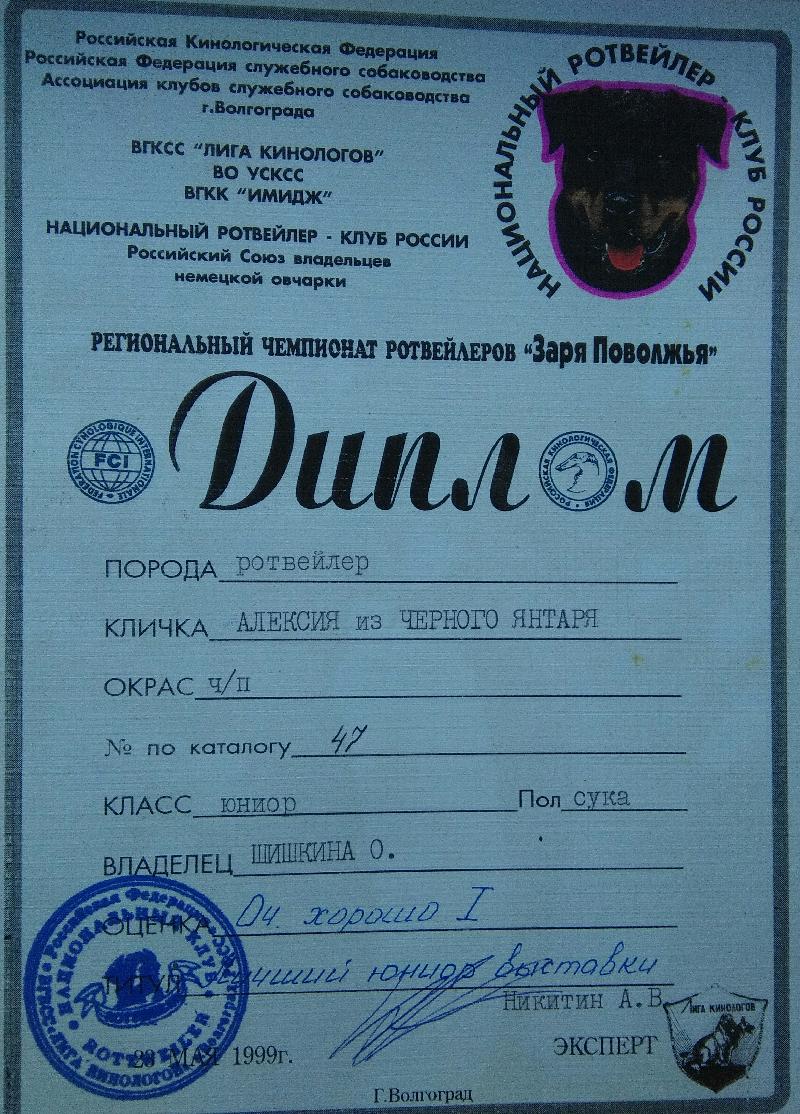 Российская Кинологическая Федерация
Российская Федерация служебного собаководства
Ассоциация клубов служебного собаководства
г.Волгограда
ВГКСС "ЛИГА КИНОЛОГОВ"
ВО УСКСС
ВГКК "ИМИДЖ"
НАЦИОНАЛЬНЫЙ РОТВЕЙЛЕР - КЛУБ РОССИИ
Российский Союз владельцев
немецкой овчарки
НАЦИОНАЛЬНЫЙ РОТВЕЙЛЕР - КЛУБ РОССИИ
РЕГИОНАЛЬНЫЙ ЧЕМПИОНАТ РОТВЕЙЛЕРОВ "Заря Поволжья"
FEDERATION CYNOLOGIQUE INTERNATIONALE
FCI
Диплом
РОССИЙСКАЯ КИНОЛОГИЧЕСКАЯ ФЕДЕРАЦИЯ
ПОРОДА ротвейлер
КЛИЧКА АЛЕКСИЯ из ЧЕРНОГО ЯНТАРЯ
ОКРАС ч/п
№ по каталогу 47
КЛАСС юниор Пол сука
ВЛАДЕЛЕЦ ШИШКИНА О.
ОЦЕНКА Оч. хорошо I
ТИТУЛ Лучший юниор выставки
Никитин А.В.
ЭКСПЕРТ
ЛИГА КИНОЛОГОВ
Российская Федерация
НАЦИОНАЛЬНЫЙ КЛУБ
ROTTWEILER
ЛИГА КИНОЛОГОВ
МАЯ 1999г.
Г.Волгоград